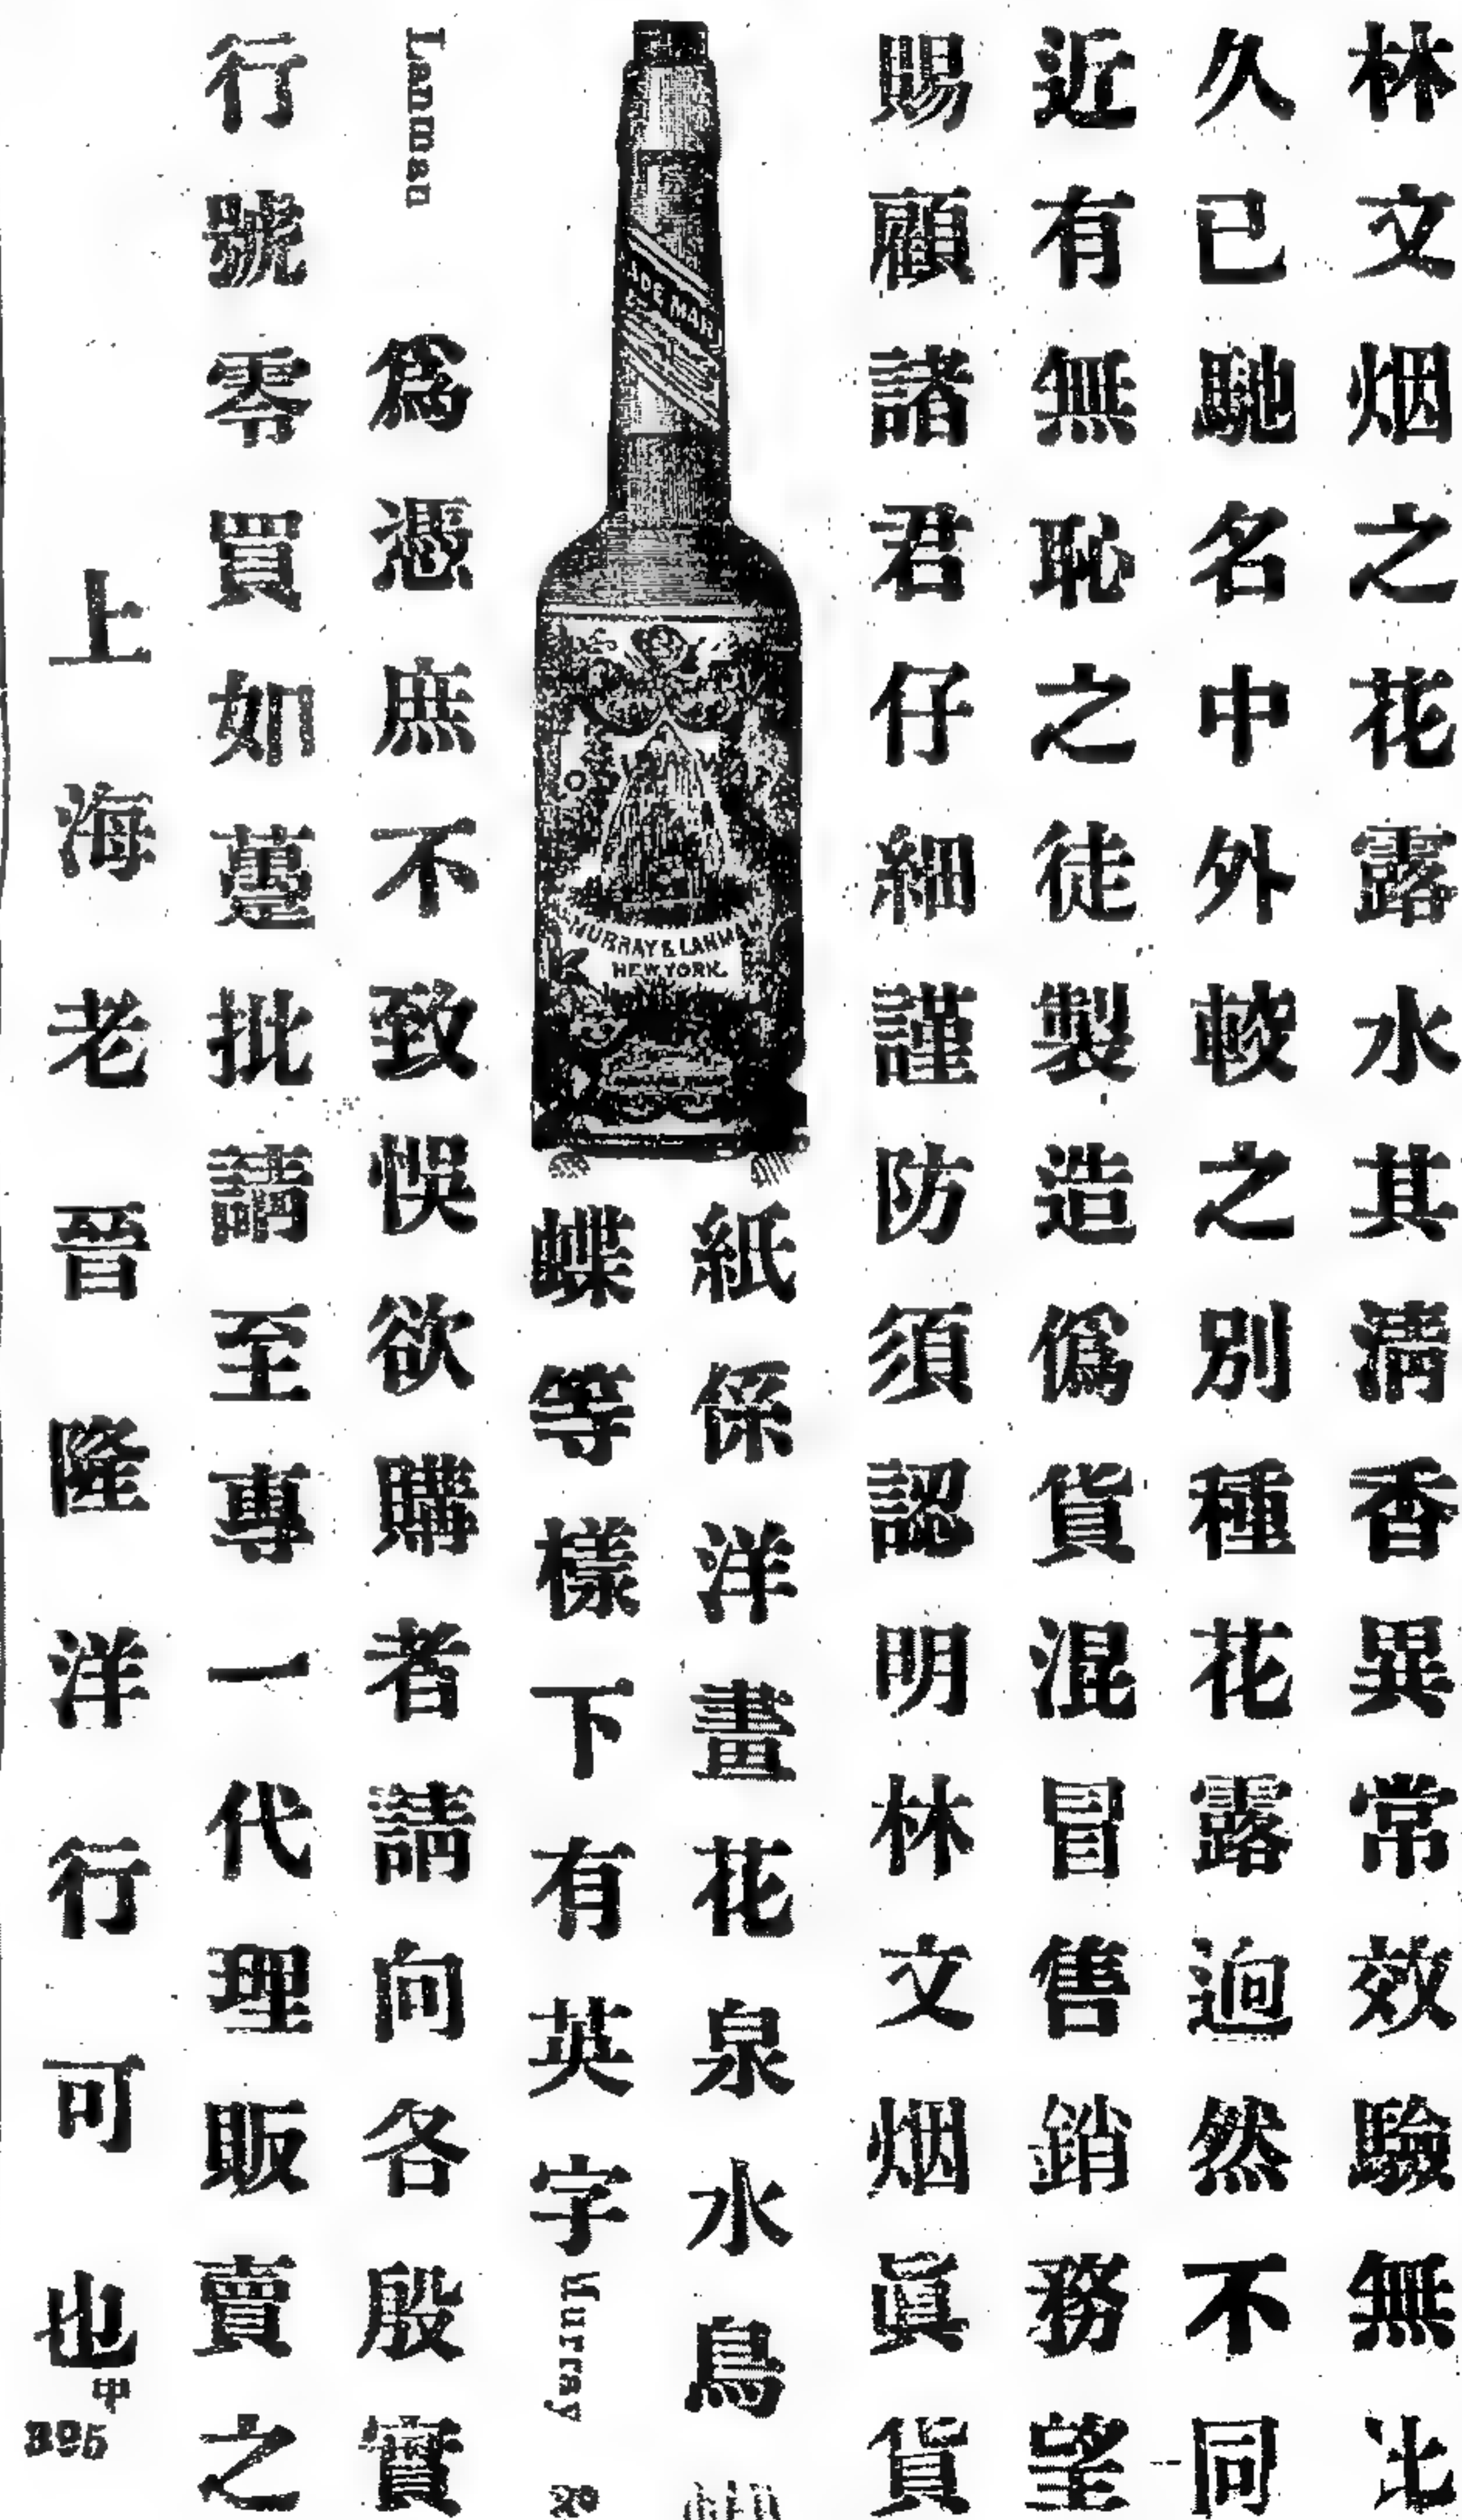 林文烟之花露水其清香異常效驗無比
久已馳名中外較之別種花露逈然不同
近有無恥之徒製造僞貨混冒售銷務望
賜顧諸君仔細謹防須認明林文烟眞貨
MURRAY & LANMAN
NEW YORK.
紙係洋畫花泉水鳥
蝶等樣下有英字Murray &
Lanman 爲憑庶不致悞欲購者請向各殷實
行號零買如躉批請至專一代理販賣之
上海老晉隆洋行可也
甲